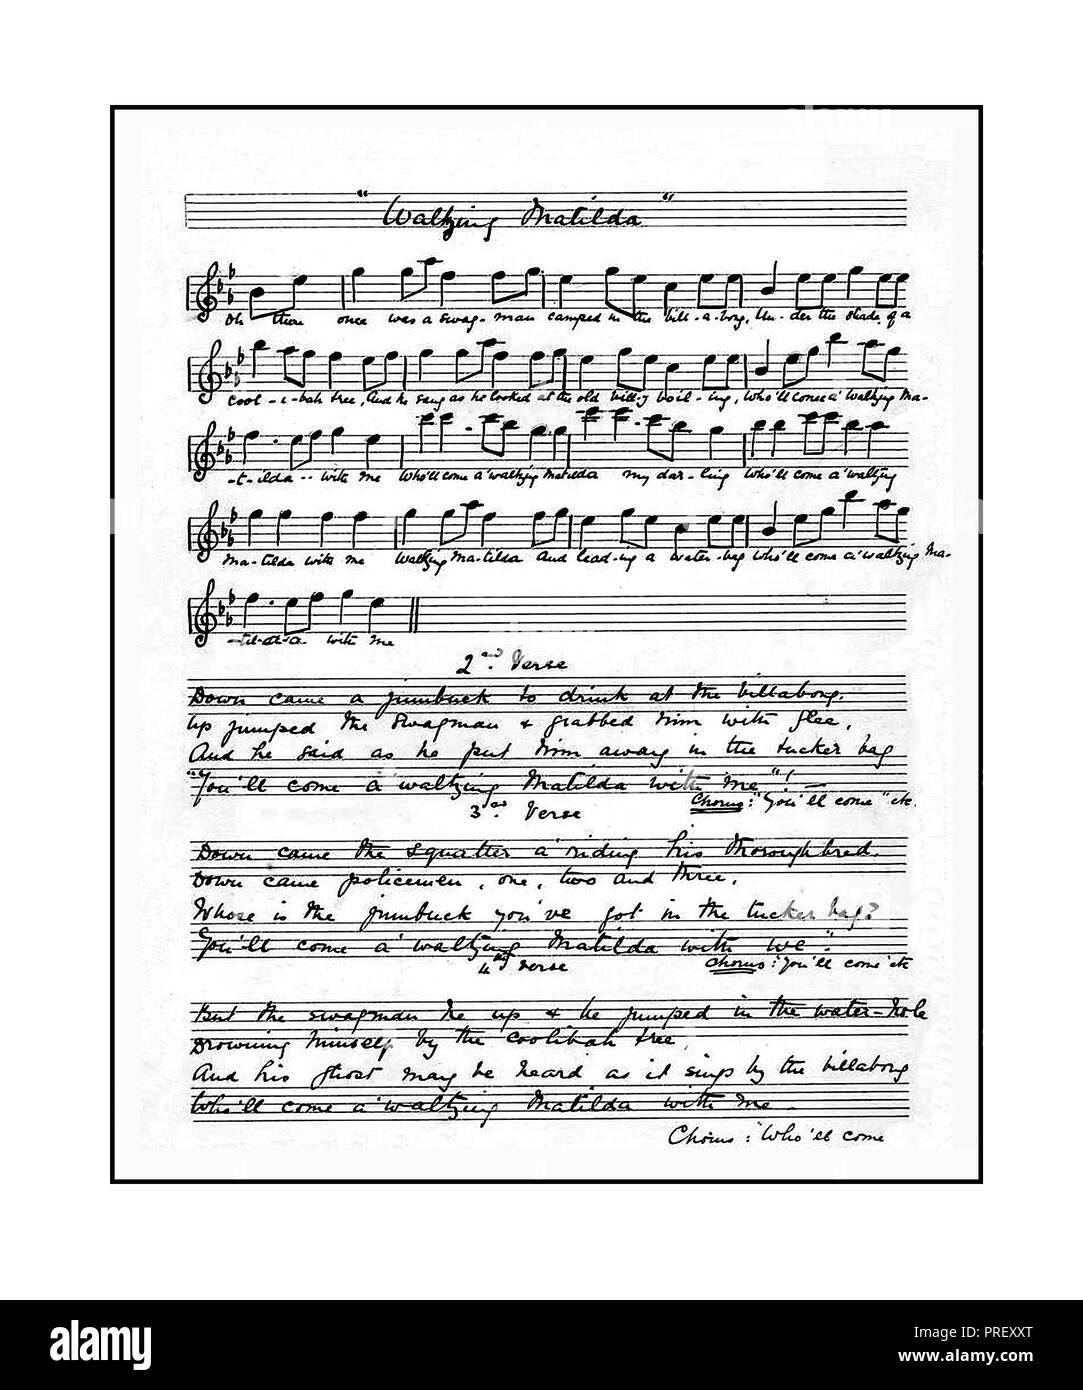 "Waltzing Matilda"
Oh there once was a swag-man camped in the bill-a-bong, Un-der the shade of a
Cool-i-bah tree, And he sang as he looked at the old bill-y boil-ing, Who'll come a' waltzing Ma-
-t-ilda -- with me Who'll come a' waltzing Matilda my dar-ling Who'll come a' waltzing
Ma-tilda with me Waltzing Ma-tilda and lead-ing a water-bag Who'll come a' waltzing Ma-
-til-d-a with me
2nd. Verse
Down came a jumbuck to drink at the billabong.
Up jumped the swagman & grabbed him with glee,
And he said as he put him away in the tucker bag
"You'll come a' waltzing Matilda with me"!
Chorus: "You'll come" etc.
3rd. Verse
Down came the squatter a' riding his thoroughbred.
Down came policemen, one, two and three.
Whose is the jumbuck you've got in the tucker bag?
You'll come a' waltzing Matilda with we".
Chorus: "You'll come" etc
4th verse
But the swagman he up & he jumped in the water-hole
Drowning himself by the coolibah tree,
And his ghost may be heard as it sings by the billabong
Who'll come a' waltzing Matilda with me.
Chorus: "Who'll come
alamy
Image ID: PREXXT
www.alamy.com